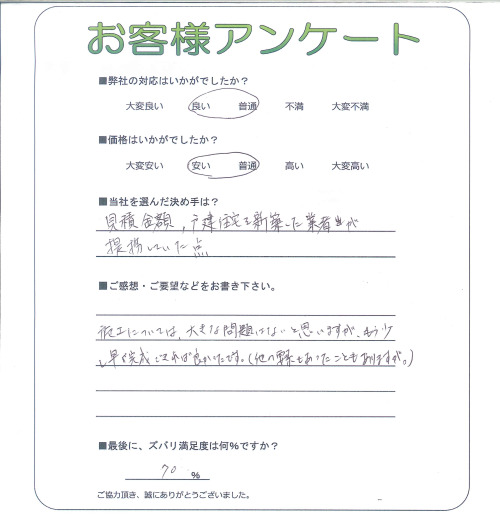 お客様アンケート
■弊社の対応はいかがでしたか？
大変良い 良い 普通 不満 大変不満
■価格はいかがでしたか？
大変安い 安い 普通 高い 大変高い
■当社を選んだ決め手は？
見積金額，戸建住宅を新築した業者が
提携していた点
■ご感想・ご要望などをお書き下さい。
施工については、大きな問題はないと思いますが、もう少
し早く完成できれば良かったです。(他の業もあったこともありますが。)
■最後に、ズバリ満足度は何%ですか？
70 %
ご協力頂き、誠にありがとうございました。